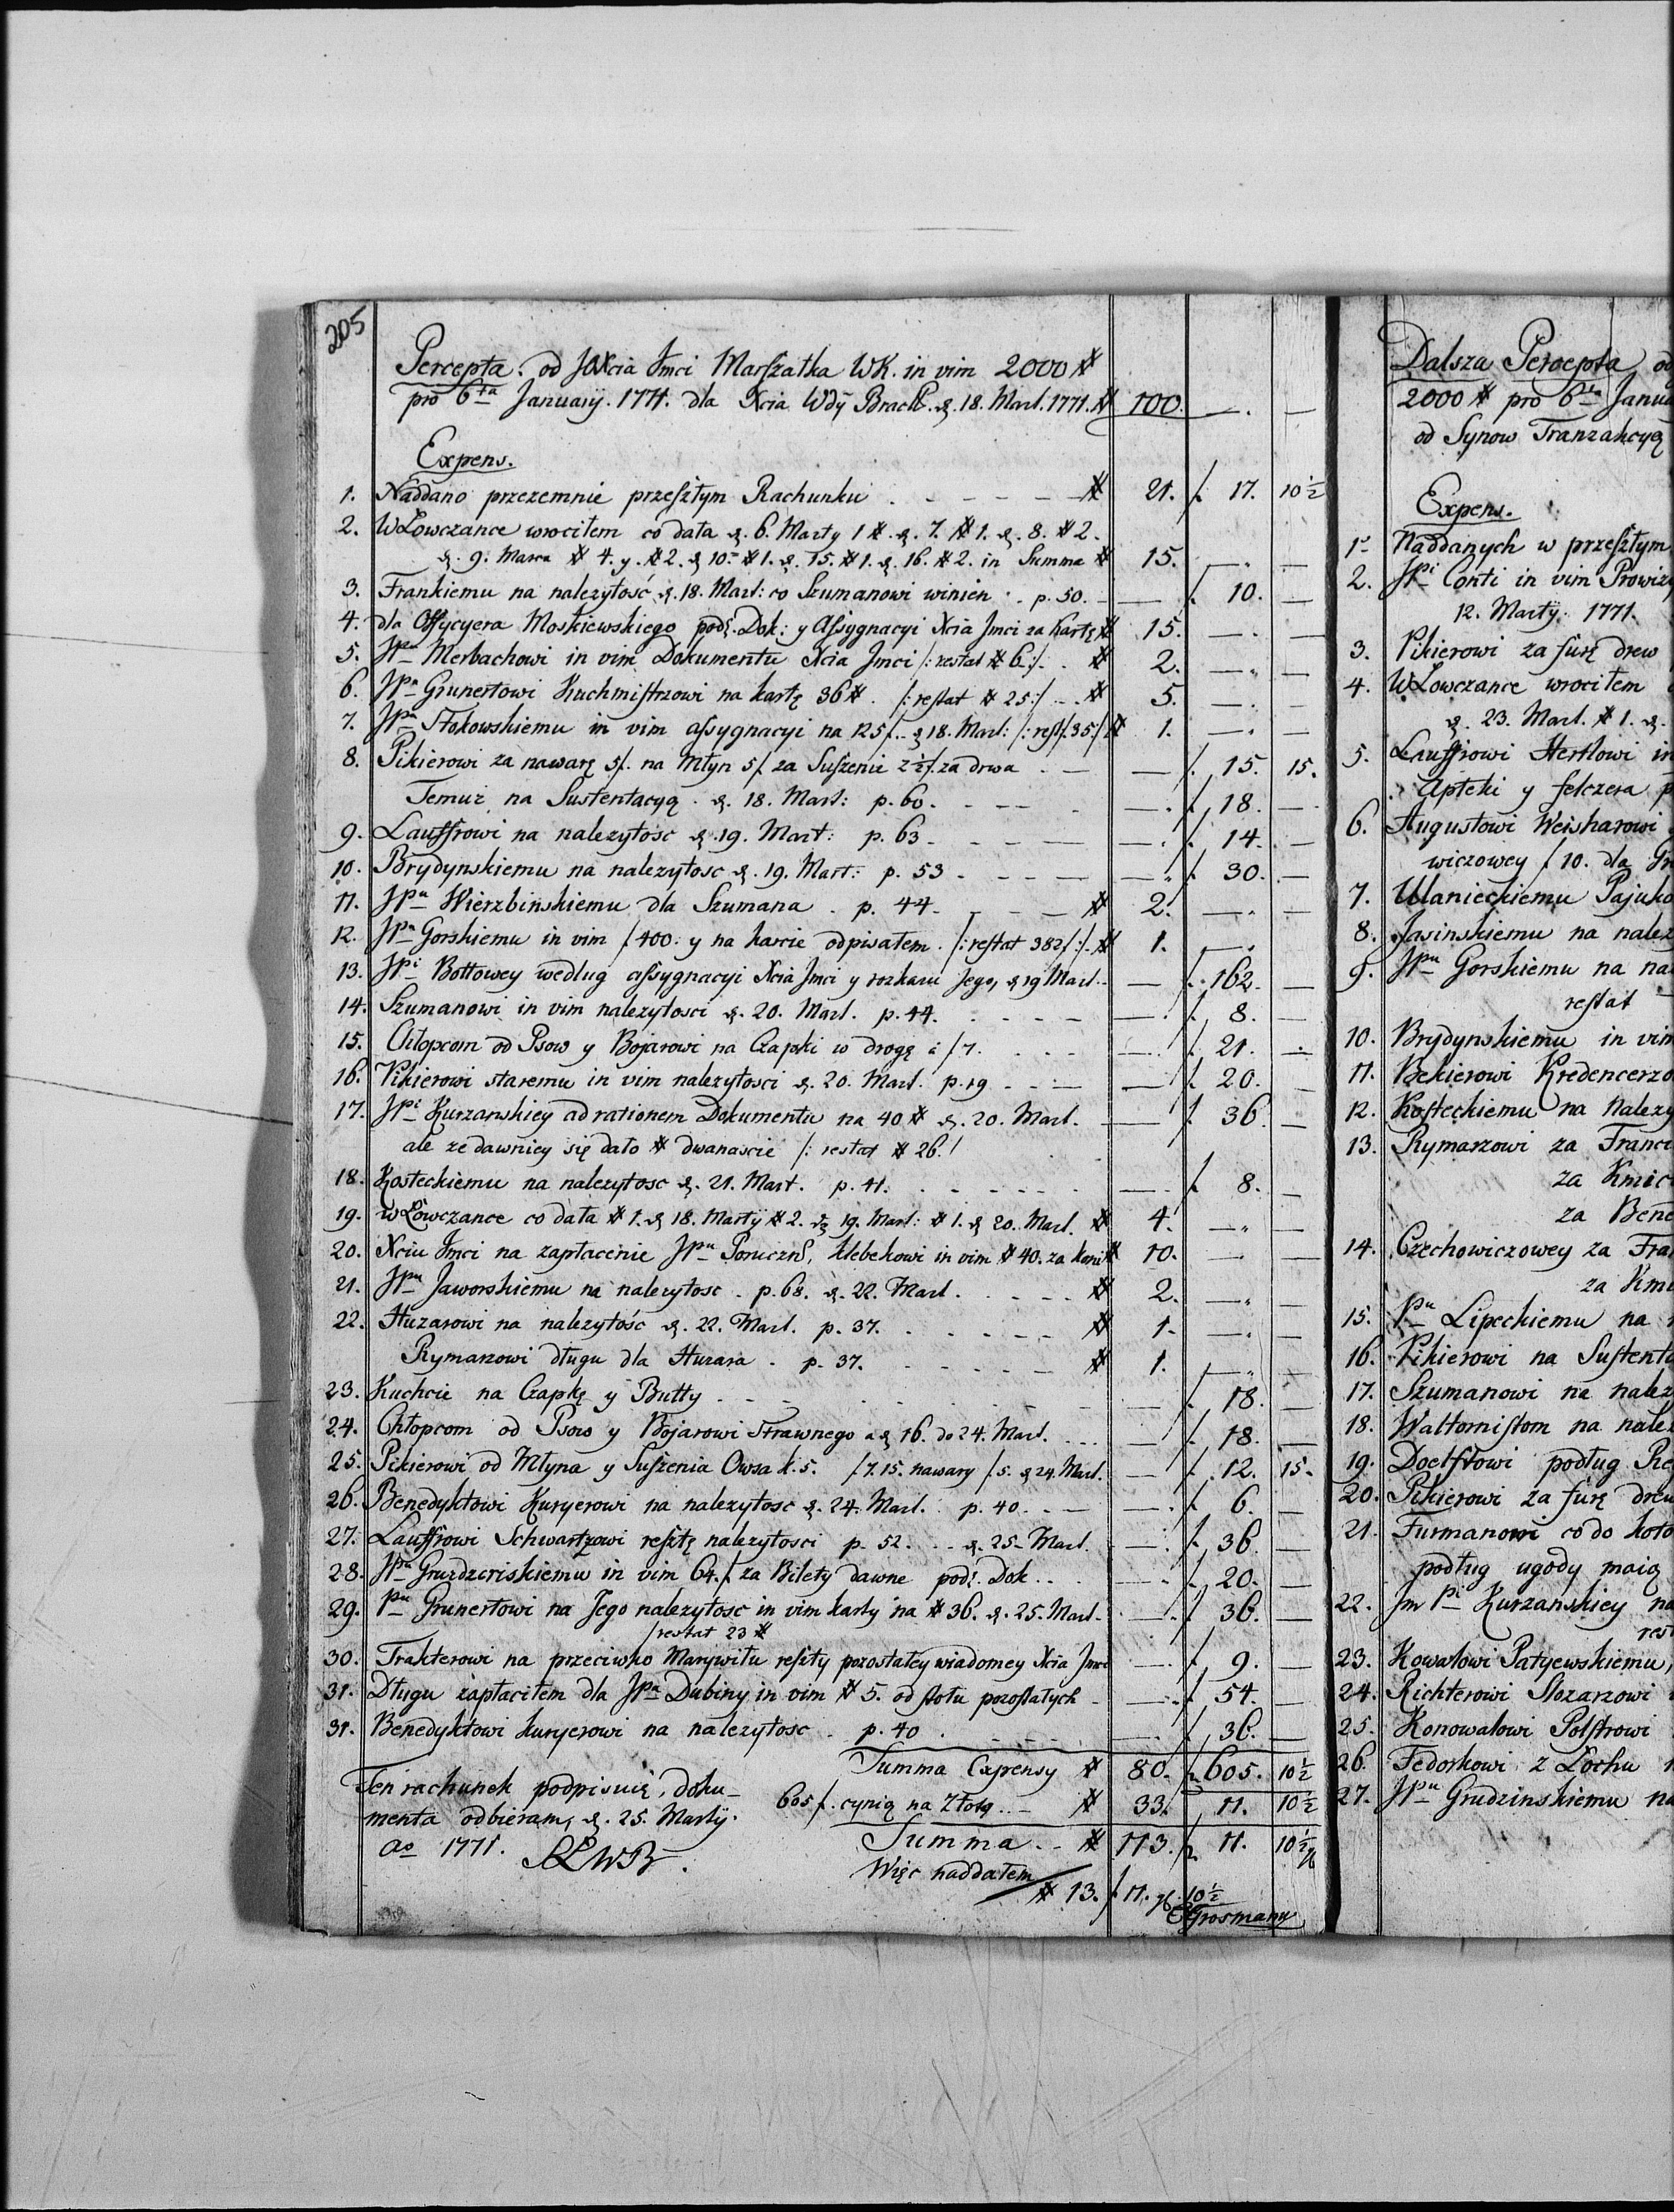 205
Percepta. od JOXcia Jmci Marszałka WK. in vim 2000 #
pro 6ta Januarij. 1771. dla Xcia Wdy Brack. d. 18. Mart. 1771. # 100. —. —
Expens.
1. Naddano przezemnie przeszłym Rachunku . - - - - # 21. f. 17. 10 1/2
2. W Łowczance wrociłem co data d. 6. Marty 1 #. d. 7. # 1. d. 8. # 2.
d. 9. Marca # 4. y. # 2. d 10. # 1. d. 15. # 1. d. 16. # 2. in Summa # 15. —. —
3. Frankiemu na nalezytość d. 18. Mart: co Szumanowi winien . p. 50. — f. 10. —
4. dla Offycyera Moskiewskiego podł. Dok: y Assygnacyi Xcia Jmci za kartę # 15. —. —
5. JPu Merbachowi in vim Dokumentu Xcia Jmci /: restat # 6 :/ . . # 2. —. —
6. JPu Grunertowi Kuchmistrzowi na kartę 36 # . /: restat # 25 :/ . . # 5. —. —
7. JPu Stokowskiemu in vim assygnacyi na 125 f. . d 18. Mart: /: rest f. 35 :/ # 1. —. —
8. Pikierowi za nawarę 5 f. na Młyn 5 f. za Suszenie 2 1/2 f. za drwa . — — f. 15. 15.
Temuż na Sustentacyą . d. 18. Mart: p. 60. - - - —. f. 18. —
9. Lauffrowi na nalezytosc d. 19. Mart: p. 63 - - - —. f. 14. —
10. Brydynskiemu na nalezytosc d. 19. Mart: p. 53 - - - —. f. 30. —
11. JPu Wierzbińskiemu dla Szumana . p. 44. - - - # 2. —. —
12. JPu Gorskiemu in vim f 400: y na karcie odpisałem . /: restat 382 f :/. # 1. —.
13. JPi Bottowey według assygnacyi Xcia Jmci y rozkazu Jego, d 19 Mart . . — f. 162. —
14. Szumanowi in vim nalezytosci d. 20. Mart. p. 44. . - - - —. f. 8. —
15. Chłopcom od Psow y Bojarowi na Czapki w drogę à f 7. . . . . —. f. 21. —
16. Pikierowi staremu in vim nalezytosci d. 20. Mart. p. 19 - - - — f. 20. —
17. JPi Kurzanskiey ad rationem Dokumentu na 40 # d. 20. Mart. — f. 36. —
ale ze dawniey się dało # dwanascie /: restat # 26. /
18. Kosteckiemu na nalezytosc d. 21. Mart. p. 41. . - - - — . f. 8. —
19. w Łowczance co data # 1. d 18. Martij # 2. d 19. Mart: # 1. d 20. Mart. # 4. —. —
20. Xciu Jmci na zapłacenie JPu klebekowi in vim # 40. za konie # 10. —. —
21. JPu Jaworskiemu na nalezytosc . p. 68. d. 22. Mart. . - - - # 2. —. —
22. Huzarowi na nalezytość d. 22. Mart. p. 37. . - - - # 1. —. —
Rymarzowi długu dla Huzara . p. 37. - - - - # 1. —. —
23. Kuchcie na Czapkę y Butty . - - - — f. 18. —
24. Chłopcom od Psow y Bojarowi Strawnego a d 16. do 24. Mart. . . . — f. 18. —
25. Pikierowi od Młyna y Suszenia Owsa k. 5. f 7. 15. nawary f 5. d 24. Mart. — f. 12. 15.
26. Benedyktowi Kuryerowi na nalezytosc d. 24. Mart. p. 40. . — —. f. 6. —
27. Lauffrowi Schwartzowi resztę nalezytosci p. 52. . . d. 25. Mart. —. f. 36. —
28. JPu in vim 64. f. za Bilety dawne podł. Dok . . —. f. 20. —
29. Pu Grunertowi na Jego nalezytosc in vim karty na # 36. d. 25. Mart. —. f. 36. —
/restat 23 #
30. Trakterowi na przeciwko Marywilu reszty pozostałey wiadomey Xcia Jmci —. f. 9. —
31. Długu zapłaciłem dla JPa Dubiny in vim # 5. od stołu pozostałych - —. f. 54. —
31. Benedyktowi kuryerowi na nalezytosc . p. 40 . - - - —. f. 36. —
Summa Expensy # 80. f. 605. 10 1/2
605 f. cynią na Złotą . . — # 33. 11. 10 1/2
Summa . . # 113. f. 11. 10 1/2
Więc naddałem
# 13. f. 11. gr. 10 1/2
Grosmany
Ten rachunek podpisuię, doku-
menta odbieram, d. 25. Martij.
ao 1771.
Dalsza Percepta od
2000 # pro 6ta Janua
od Synow Tranzakcyą
Expens.
1. Naddanych w przeszłym
2. JPi Conti in vim Prowizy
12. Martij. 1771.
3. Pikierowi za furę drew
4. W Łowczance wrociłem
d. 23. Mart. # 1. d.
5. Lauffrowi Hertlowi in
Apteki y felczera p
6. Augustowi Weisharowi
wiczowey f 10. dla
7. Ulanieckiemu Pajuko
8. Jasinskiemu na nalez
9. JPu Gorskiemu na na
restat —
10. Brydynskiemu in vim
11. Bekierowi Kredencerzo
12. Kosteckiemu na Nalezy
13. Rymarzowi za Franci
za Kmic
za Bene
14. Czechowiczowey za Fran
za Kmi
15. Pu Lipeckiemu na
16. Pikierowi na Sustenta
17. Szumanowi na nalez
18. Waltornistom na nalez
19. Doelfsowi podług Re
20. Pikierowi za furę drew
21. Furmanowi co do koło
podług ugody maią
22. Jm Pi Kurzanskiey na
rest
23. Kowalowi Patyewskiemu,
24. Richterowi Slozarzowi
25. Konowałowi Polstrowi
26. Fedorkowi z Lochu
27. JPu Grudzinskiemu na